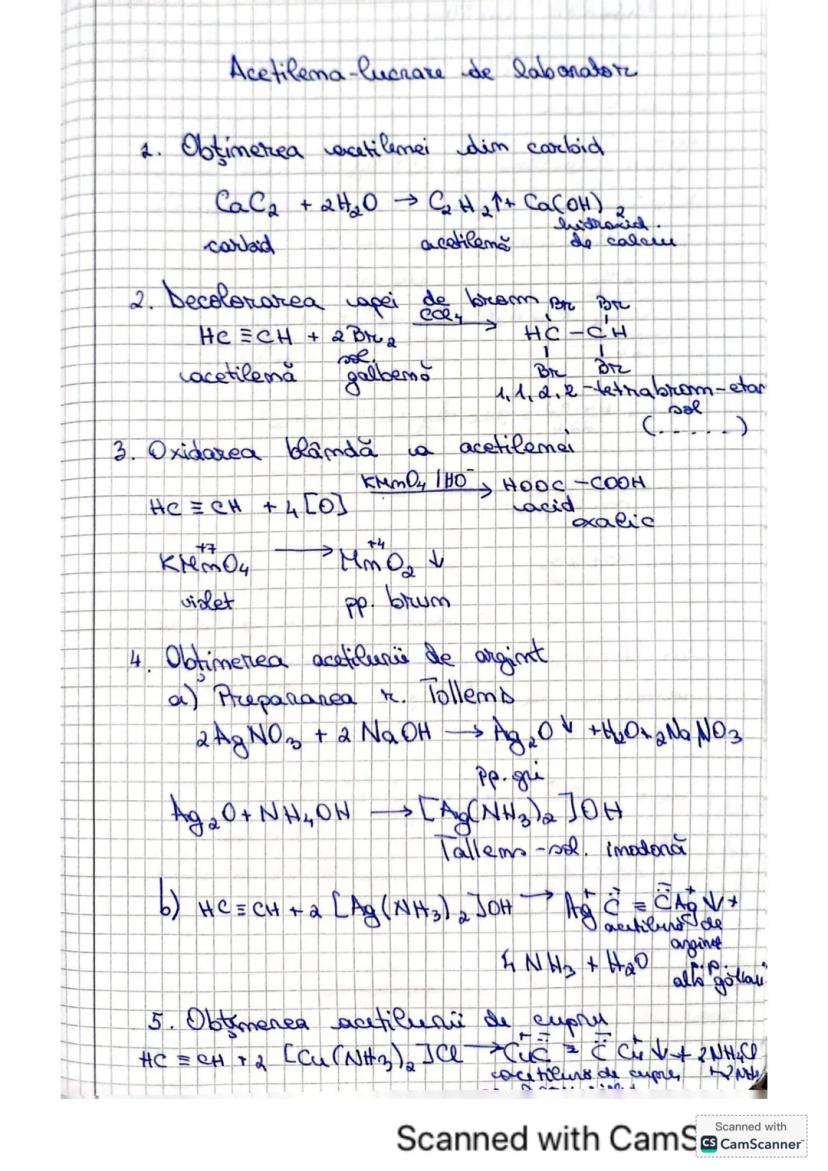 Acetilena-lucrare de laborator
1. Obținerea acetilenei din carbid
CaC₂ + 2H₂O → C₂H₂↑ + Ca(OH)₂
carbid acetilenă hidroxid de calciu
2. Decolorarea apei de brom
Br Br
HC ≡ CH + 2Br₂ CCl₄ → HC - CH
sol. Br Br
acetilenă galbenă 1,1,2,2-tetrabrom-etan
sol
(.....)
3. Oxidarea blândă a acetilenei
HC ≡ CH + 4[O] KMnO₄/HO⁻ → HOOC - COOH
acid oxalic
+7 +4
KMnO₄ → MnO₂ ↓
violet pp. brun
4. Obținerea acetilurii de argint
a) Prepararea r. Tollens
2AgNO₃ + 2NaOH → Ag₂O↓ + H₂O + 2NaNO₃
pp. gri
Ag₂O + NH₄OH → [Ag(NH₃)₂]OH
Tollens - sol. incoloră
b) HC ≡ CH + 2[Ag(NH₃)₂]OH → Ag⁺ C̈⁻ ≡ C̈⁻ Ag⁺ ↓ +
acetilură de argint
4NH₃ + H₂O p.p. alb gălbui
5. Obținerea acetilurii de cupru
HC ≡ CH + 2[Cu(NH₃)₂]Cl → Cu⁺ C̈⁻ ≡ C̈⁻ Cu⁺ ↓ + 2NH₄Cl
acetilură de cupru +2NH₃
Scanned with CamS
Scanned with
CS CamScanner